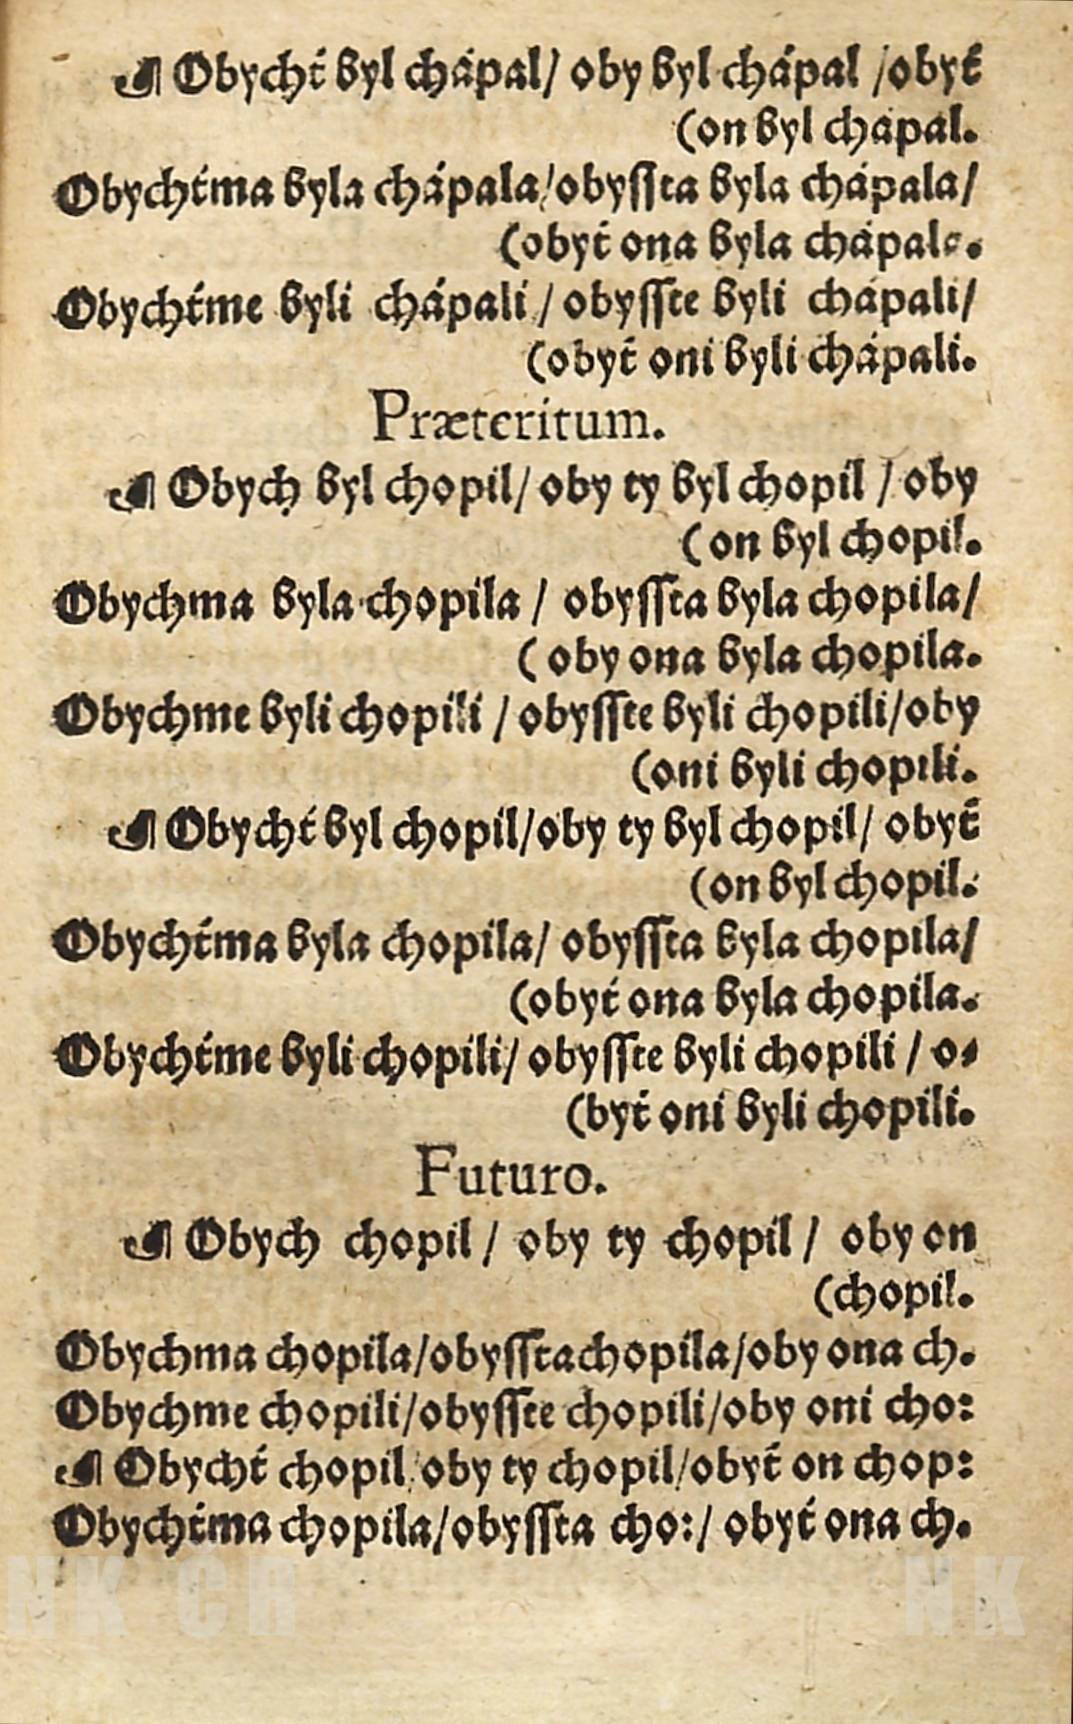 ☙ Obychť byl chápal/ oby byl chápal /obyť
(on byl chápal.
Obychťma byla chápala/obyſſta byla chápala/
(obyť ona byla chápala.
Obychťme byli chápali / obyſſte byli chápali/
(obyť oni byli chápali.
Præteritum.
☙ Obych byl chopil/ oby ty byl chopil / oby
(on byl chopil.
Obychma byla chopila / obyſſta byla chopila/
( oby ona byla chopila.
Obychme byli chopili / obyſſte byli chopili/oby
(oni byli chopili.
☙ Obychť byl chopil/oby ty byl chopil/ obyť
(on byl chopil.
Obychťma byla chopila/ obyſſta byla chopila/
(obyť ona byla chopila.
Obychťme byli chopili/ obyſſte byli chopili / o⸗
(byť oni byli chopili.
Futuro.
☙ Obych chopil / oby ty chopil / oby on
(chopil.
Obychma chopila/obyſſtachopila/oby ona ch.
Obychme chopili/obyſſte chopili/oby oni cho:
☙ Obychť chopil/oby ty chopil/obyť on chop:
Obychťma chopila/obyſſta cho:/ obyť ona ch.
NK ČR NK